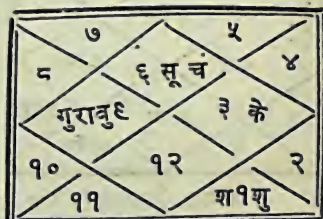 ७ ५
८ ६ सू चं ४
गुराबु९ ३ के
१० १२ २
११ श१शु